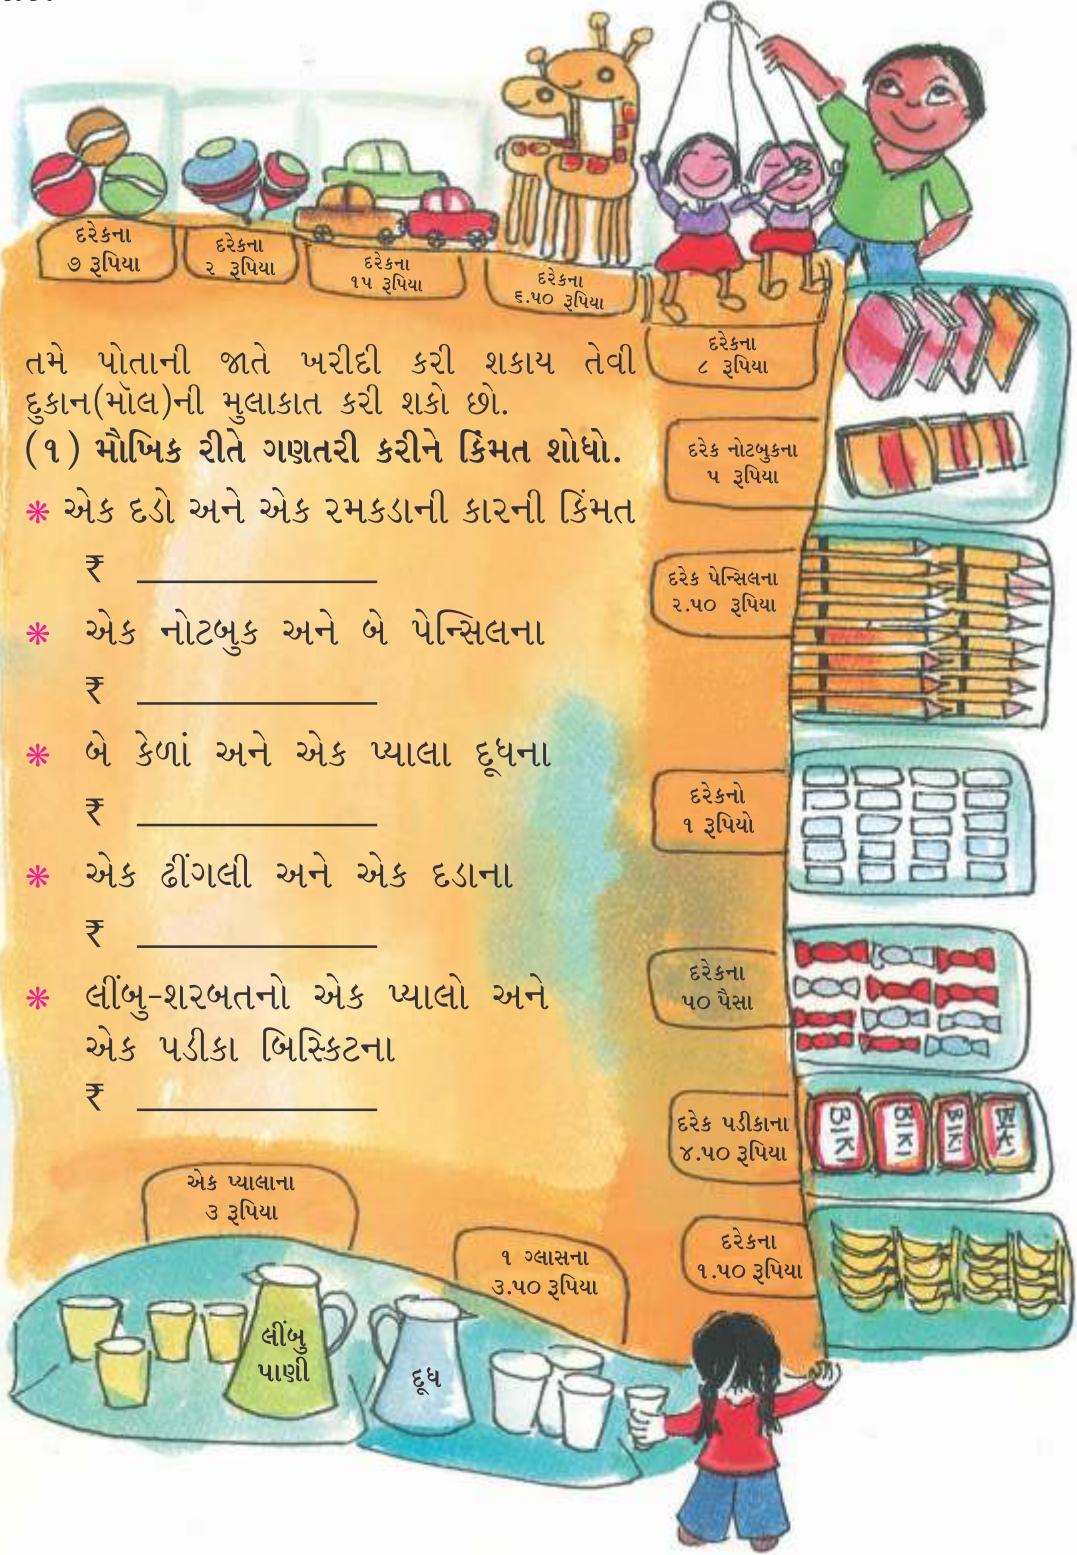 દરેકના
૭ રૂપિયા
દરેકના
૨ રૂપિયા
દરેકના
૧૫ રૂપિયા
દરેકના
૬.૫૦ રૂપિયા
દરેકના
૮ રૂપિયા
તમે પોતાની જાતે ખરીદી કરી શકાય તેવી
દુકાન(મૉલ)ની મુલાકાત કરી શકો છો.
(૧) મૌખિક રીતે ગણતરી કરીને કિંમત શોધો.
❋ એક દડો અને એક રમકડાની કારની કિંમત
₹ ____________
❋ એક નોટબુક અને બે પેન્સિલના
₹ ____________
❋ બે કેળાં અને એક પ્યાલા દૂધના
₹ ____________
❋ એક ઢીંગલી અને એક દડાના
₹ ____________
❋ લીંબુ-શરબતનો એક પ્યાલો અને
એક પડીકા બિસ્કિટના
₹ ____________
દરેક નોટબુકના
૫ રૂપિયા
દરેક પેન્સિલના
૨.૫૦ રૂપિયા
દરેકનો
૧ રૂપિયો
દરેકના
૫૦ પૈસા
દરેક પડીકાના
૪.૫૦ રૂપિયા
BIKI
BIKI
BIKI
BIKI
દરેકના
૧.૫૦ રૂપિયા
એક પ્યાલાના
૩ રૂપિયા
૧ ગ્લાસના
૩.૫૦ રૂપિયા
લીંબુ
પાણી
દૂધ